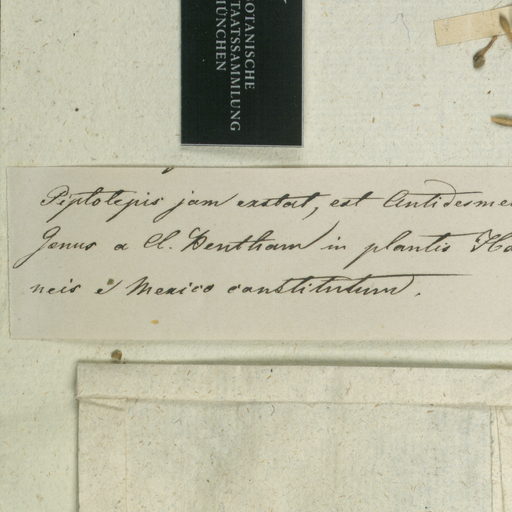 BOTANISCHE
STAATSSAMMLUNG
MÜNCHEN
Piptolepis jam exstat, est Antidesme
Genus a Cl. Bentham in plantis Ha
neis e Mexico constitutum.